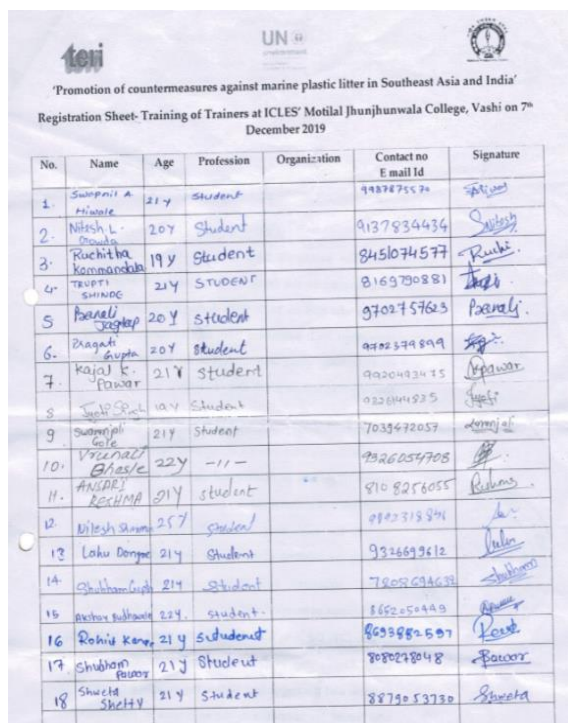 teri
UN
environment
'Promotion of countermeasures against marine plastic litter in Southeast Asia and India'
Registration Sheet- Training of Trainers at ICLES' Motilal Jhunjhunwala College, Vashi on 7th
December 2019
No. Name Age Profession Organization Contact no E mail Id Signature
1. Swapnil A Hiwale 21 Y Student 9987875570
2. Nitesh L. Gowda 20 Y Student 9137834434 Nitesh
3. Ruchitha Kommandala 19 Y Student 8451074577 Ruchi
4. TRUPTI SHINDE 21 Y STUDENT 8169790881
5 Pranali Jagtap 20 Y Student 9702757623 Pranali.
6. Pragati Gupta 20 Y Student 9702379899
7. Kajal K. Pawar 21 Y Student 9920493435 Kpawar
8 Jyoti 19 Y Student 9226144835 Jyoti
9 Swaranjali Gole 21 Y Student 7039472057
10. Vrunali Bhosle 22 Y -11- 9326054708
11. ANSARI RESHMA 21 Y student 8108256055
12. Nilesh 25 Y Student
13 Lahu Dongre 21 Y Student 9326699612
14 Shubham Gupta 21 Y Student Shubham
15 Akshay 22 Y. Student. 8652050449
16 Rohit 21 y sutudenut 8693882597
17. Shubham Pawar 21 y Student 8080278048 Pawar
18 Shweta Shetty 21 Y Student 8879053730 Shweta